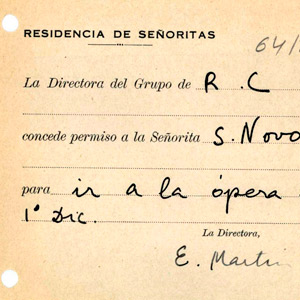 RESIDENCIA DE SEÑORITAS
64/
La Directora del Grupo de R. C
concede permiso a la Señorita S. Novo
para ir a la ópera
1º Dic.
La Directora,
E. Martin